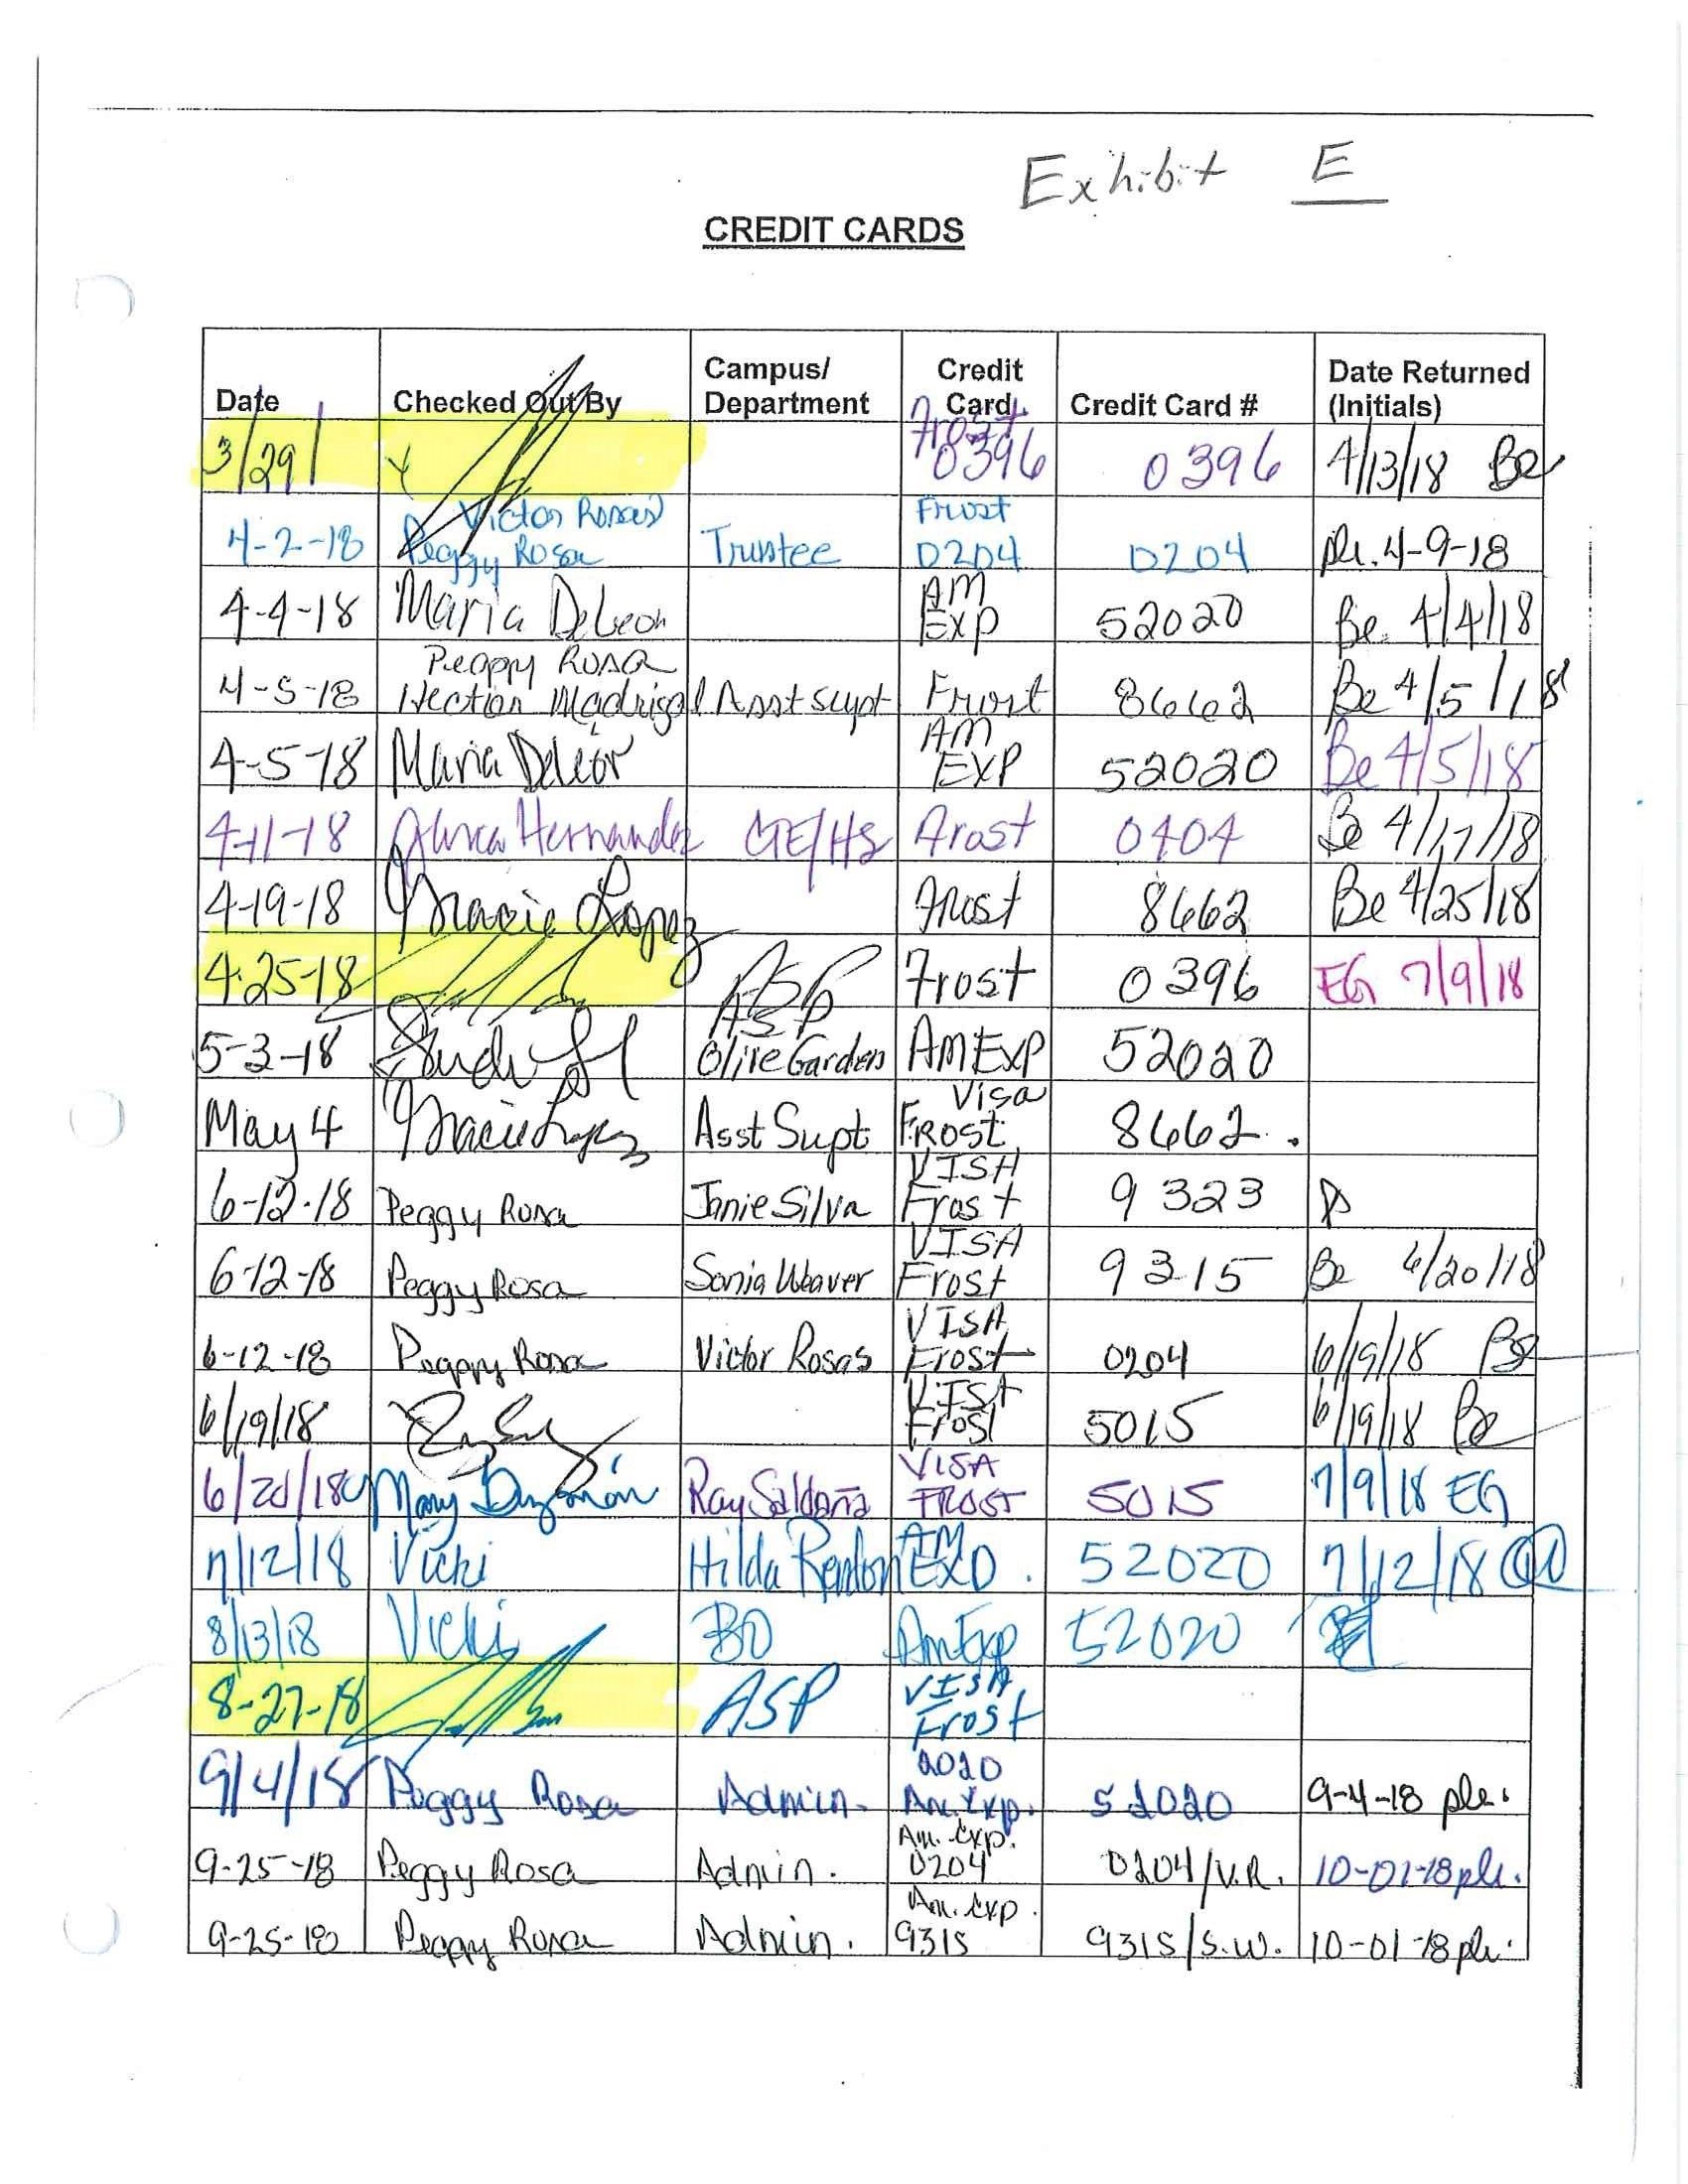 Exhibit E
CREDIT CARDS
Date Checked Out By Campus/ Department Credit Card Credit Card # Date Returned (Initials)
3/29/ Frost 0396 0396 4/13/18 Be
4-2-18 Victor Rosas Peggy Rosa Trustee Frost 0204 0204 plr. 4-9-18
4-4-18 Maria DeLeon AM Exp 52020 Be 4/4/18
4-5-18 Peggy Rosa Hector Madrigal Asst supt Frost 8662 Be 4/5/18
4-5-18 Maria DeLeon AM EXP 52020 Be 4/5/18
4-11-18 Hernandez CTE/HS Frost 0404 Be 4/17/18
4-19-18 Gracie Lopez Frost 8662 Be 4/25/18
4-25-18 ASP Frost 0396 EG 7/9/18
5-3-18 Olive Garden AM EXP 52020
May 4 Gracie Lopez Asst Supt Visa FROST 8662.
6-12-18 Peggy Rosa Janie Silva VISA Frost 9323
6-12-18 Peggy Rosa Sonia Weaver VISA Frost 9315 Be 6/20/18
6-12-18 Peggy Rosa Victor Rosas VISA Frost 0204 6/19/18 Be
6/19/18 VISA Frost 5015 6/19/18 Be
6/20/18 Mary Guzmán Ray Saldaña VISA FROST 5015 7/9/18 EG
7/12/18 Vicki Hilda Rendon AM EXP. 52020 7/12/18
8/13/18 Vicki BO Am Exp 52020
8-27-18 ASP VISA Frost
9/4/18 Peggy Rosa Admin. 2020 Am. Exp. 52020 9-4-18 plr.
9-25-18 Peggy Rosa Admin. Am. Exp. 0204 0204/V.R. 10-01-18 plr.
9-25-18 Peggy Rosa Admin. Am. Exp. 9315 9315/S.W. 10-01-18 plr.